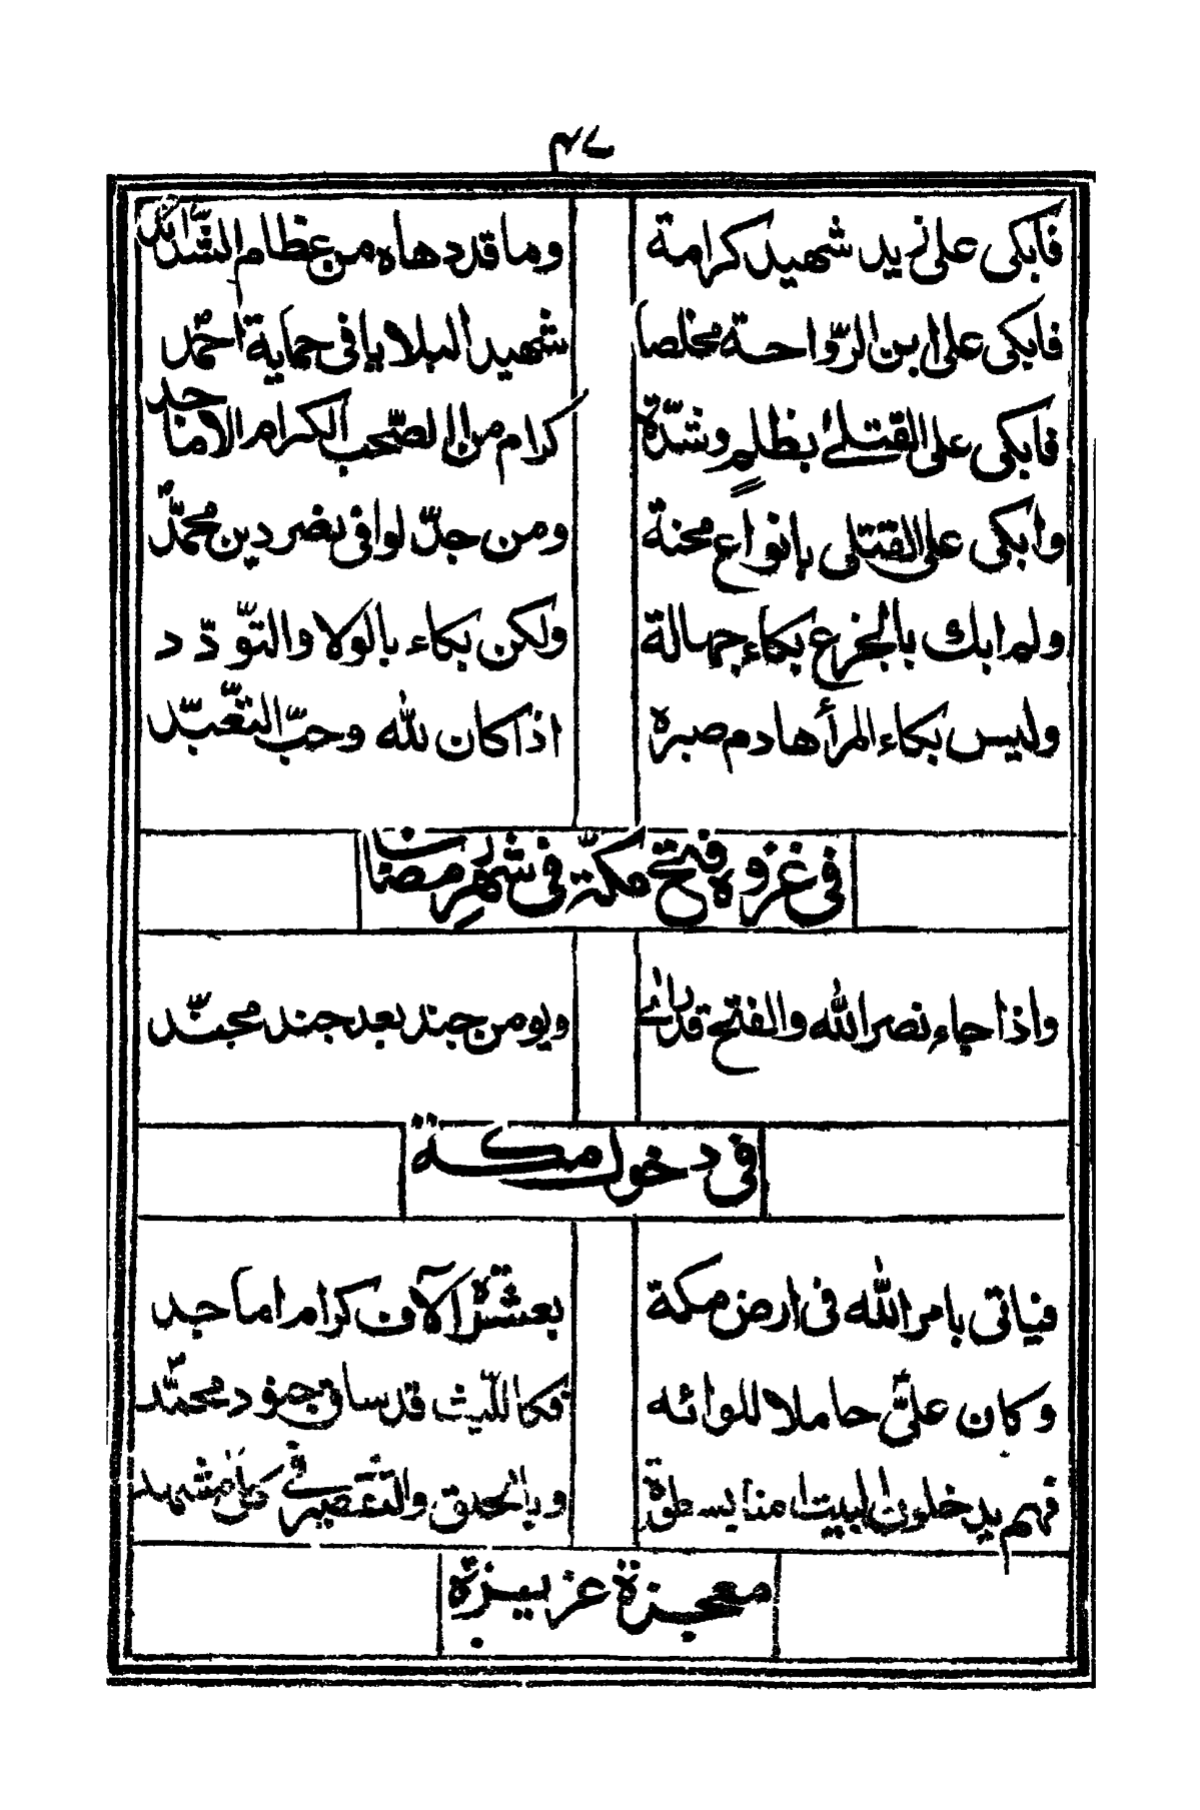 ٤٧
فابكى على زيد شهيد كرامة وما قد دهاه من عظام الشدائد
فابكى على ابن الرّواحة مخلصا شهيد البلايا فى حماية احمد
فابكى على القتلىٰ بظلمٍ وشدّة كرام من الصّحب الكرام الاماجد
وابكى على القتلى بانواع محنة ومن جدّ لوافى نصر دين محمّد
ولم ابك بالجزع بكاء جهالة ولكن بكاء بالولا والتّودّد
وليس بكاء المرأ هادم صبره اذا كان لله وحبّ التعبّد
فى غزوه فتح مكّة فى شهر رمضان
واذا جاء نصر الله والفتح قد ويومن جند بعد جند مجنّد
فى دخول مكة
فياتى بامر الله فى ارض مكة بعشرة آلاف كرام اماجد
وكان علىّ حاملا للوائه فكا اللّيث قد ساق جنود محمّد
فهم يدخلون البيت امنا بسطوة وبالحلق والتقصير فى كل مشهد
معجزة عزيزة